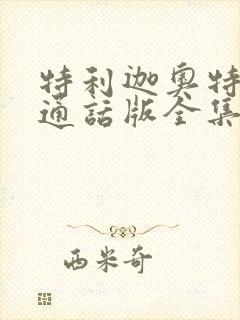 特利迦奥特
通話版全集
西米奇